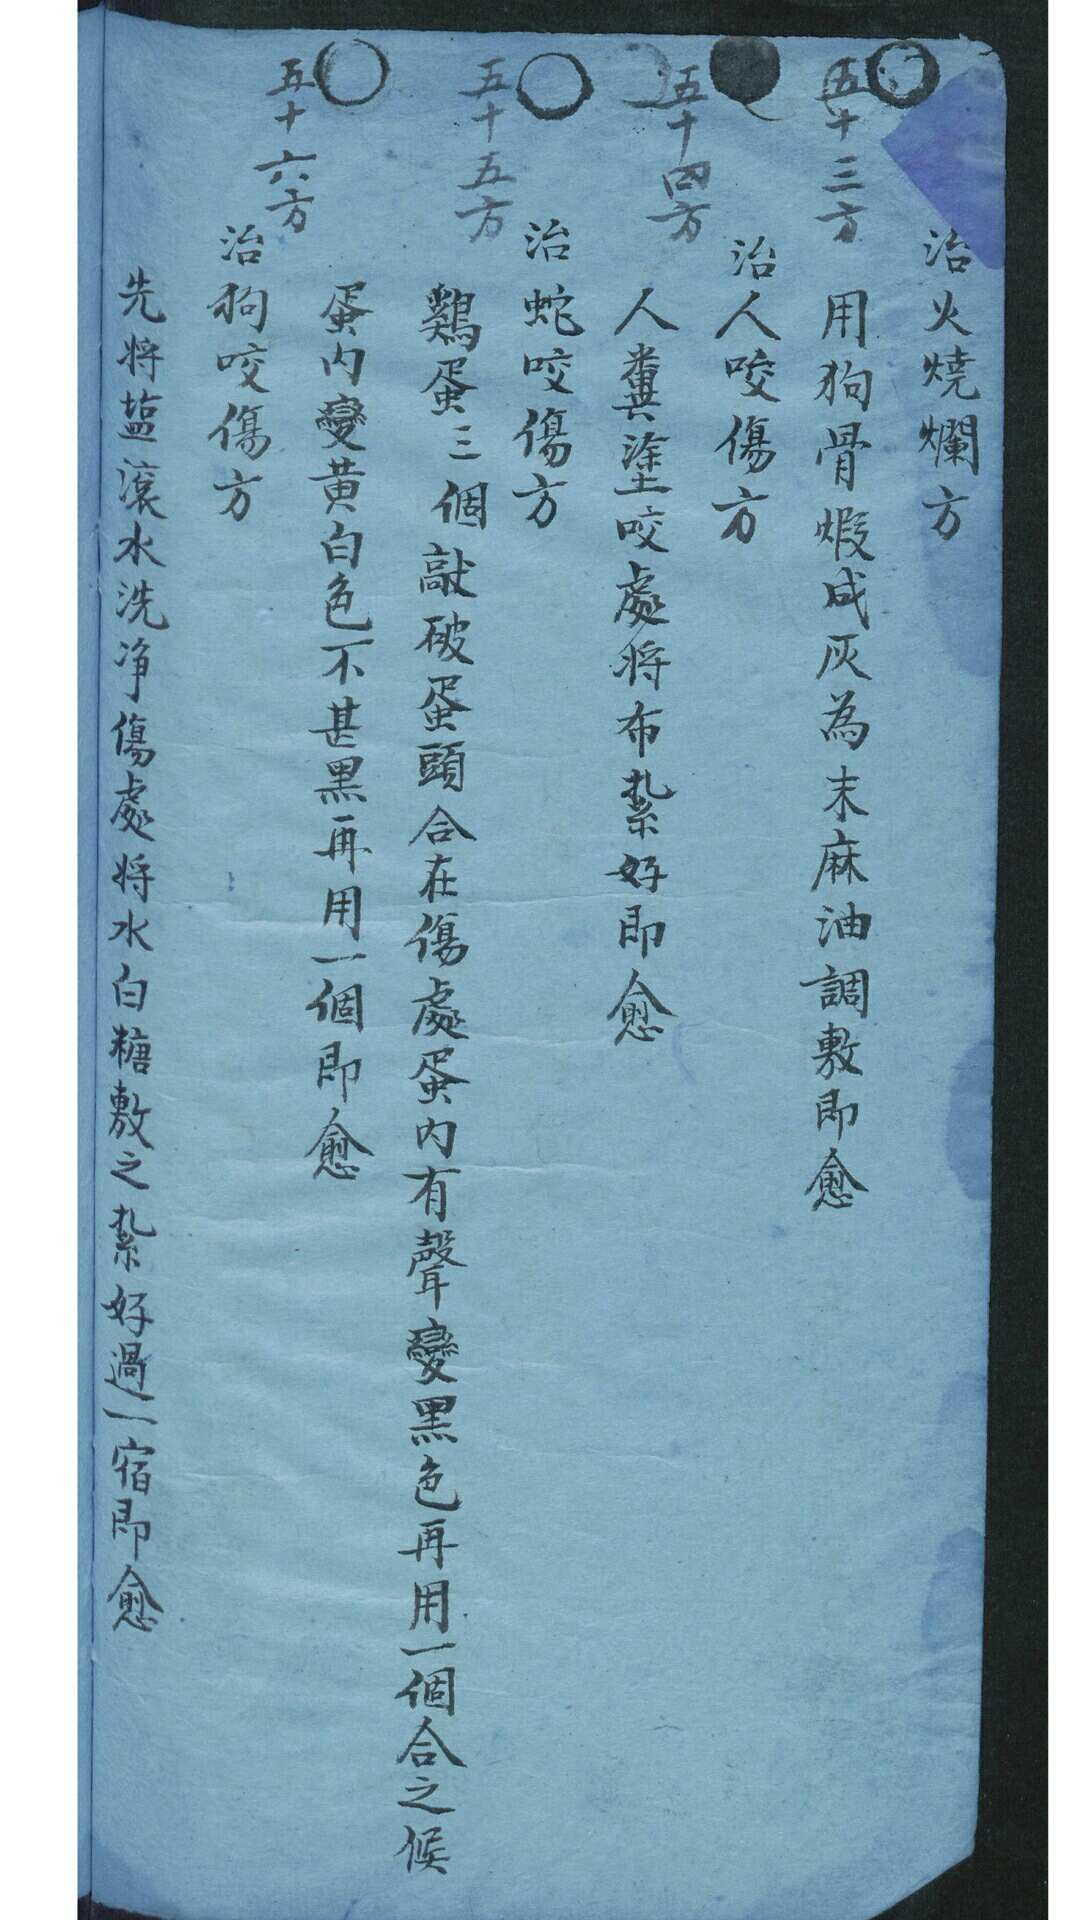 治火燒爛方
五十三方
用狗骨煅成灰為末麻油調敷即愈
治人咬傷方
五十四方
人糞塗咬處将布紮好即愈
治蛇咬傷方
五十五方
鷄蛋三個敲破蛋頭合在傷處蛋内有聲變黑色再用一個合之候
蛋内變黄白色不甚黑再用一個即愈
五十六方
治狗咬傷方
先将盐滚水洗净傷處将水白糖敷之紮好過一宿即愈